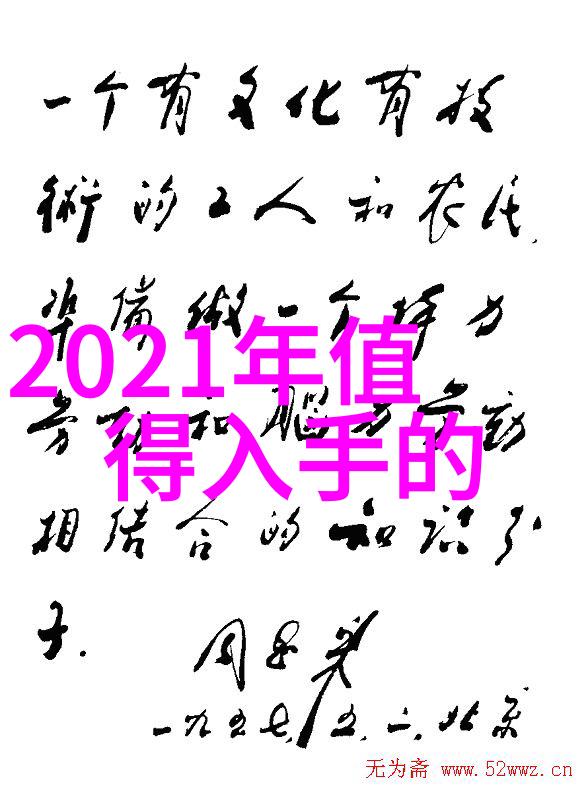 一个有文化有技
術的工人和农民,
準備做一个体力
2021年值
劳动和腦力劳动
得入手的
相结合的知识分
子.
周恩来
一九五七,五.二.北京
无为斋 www.52wwz.cn